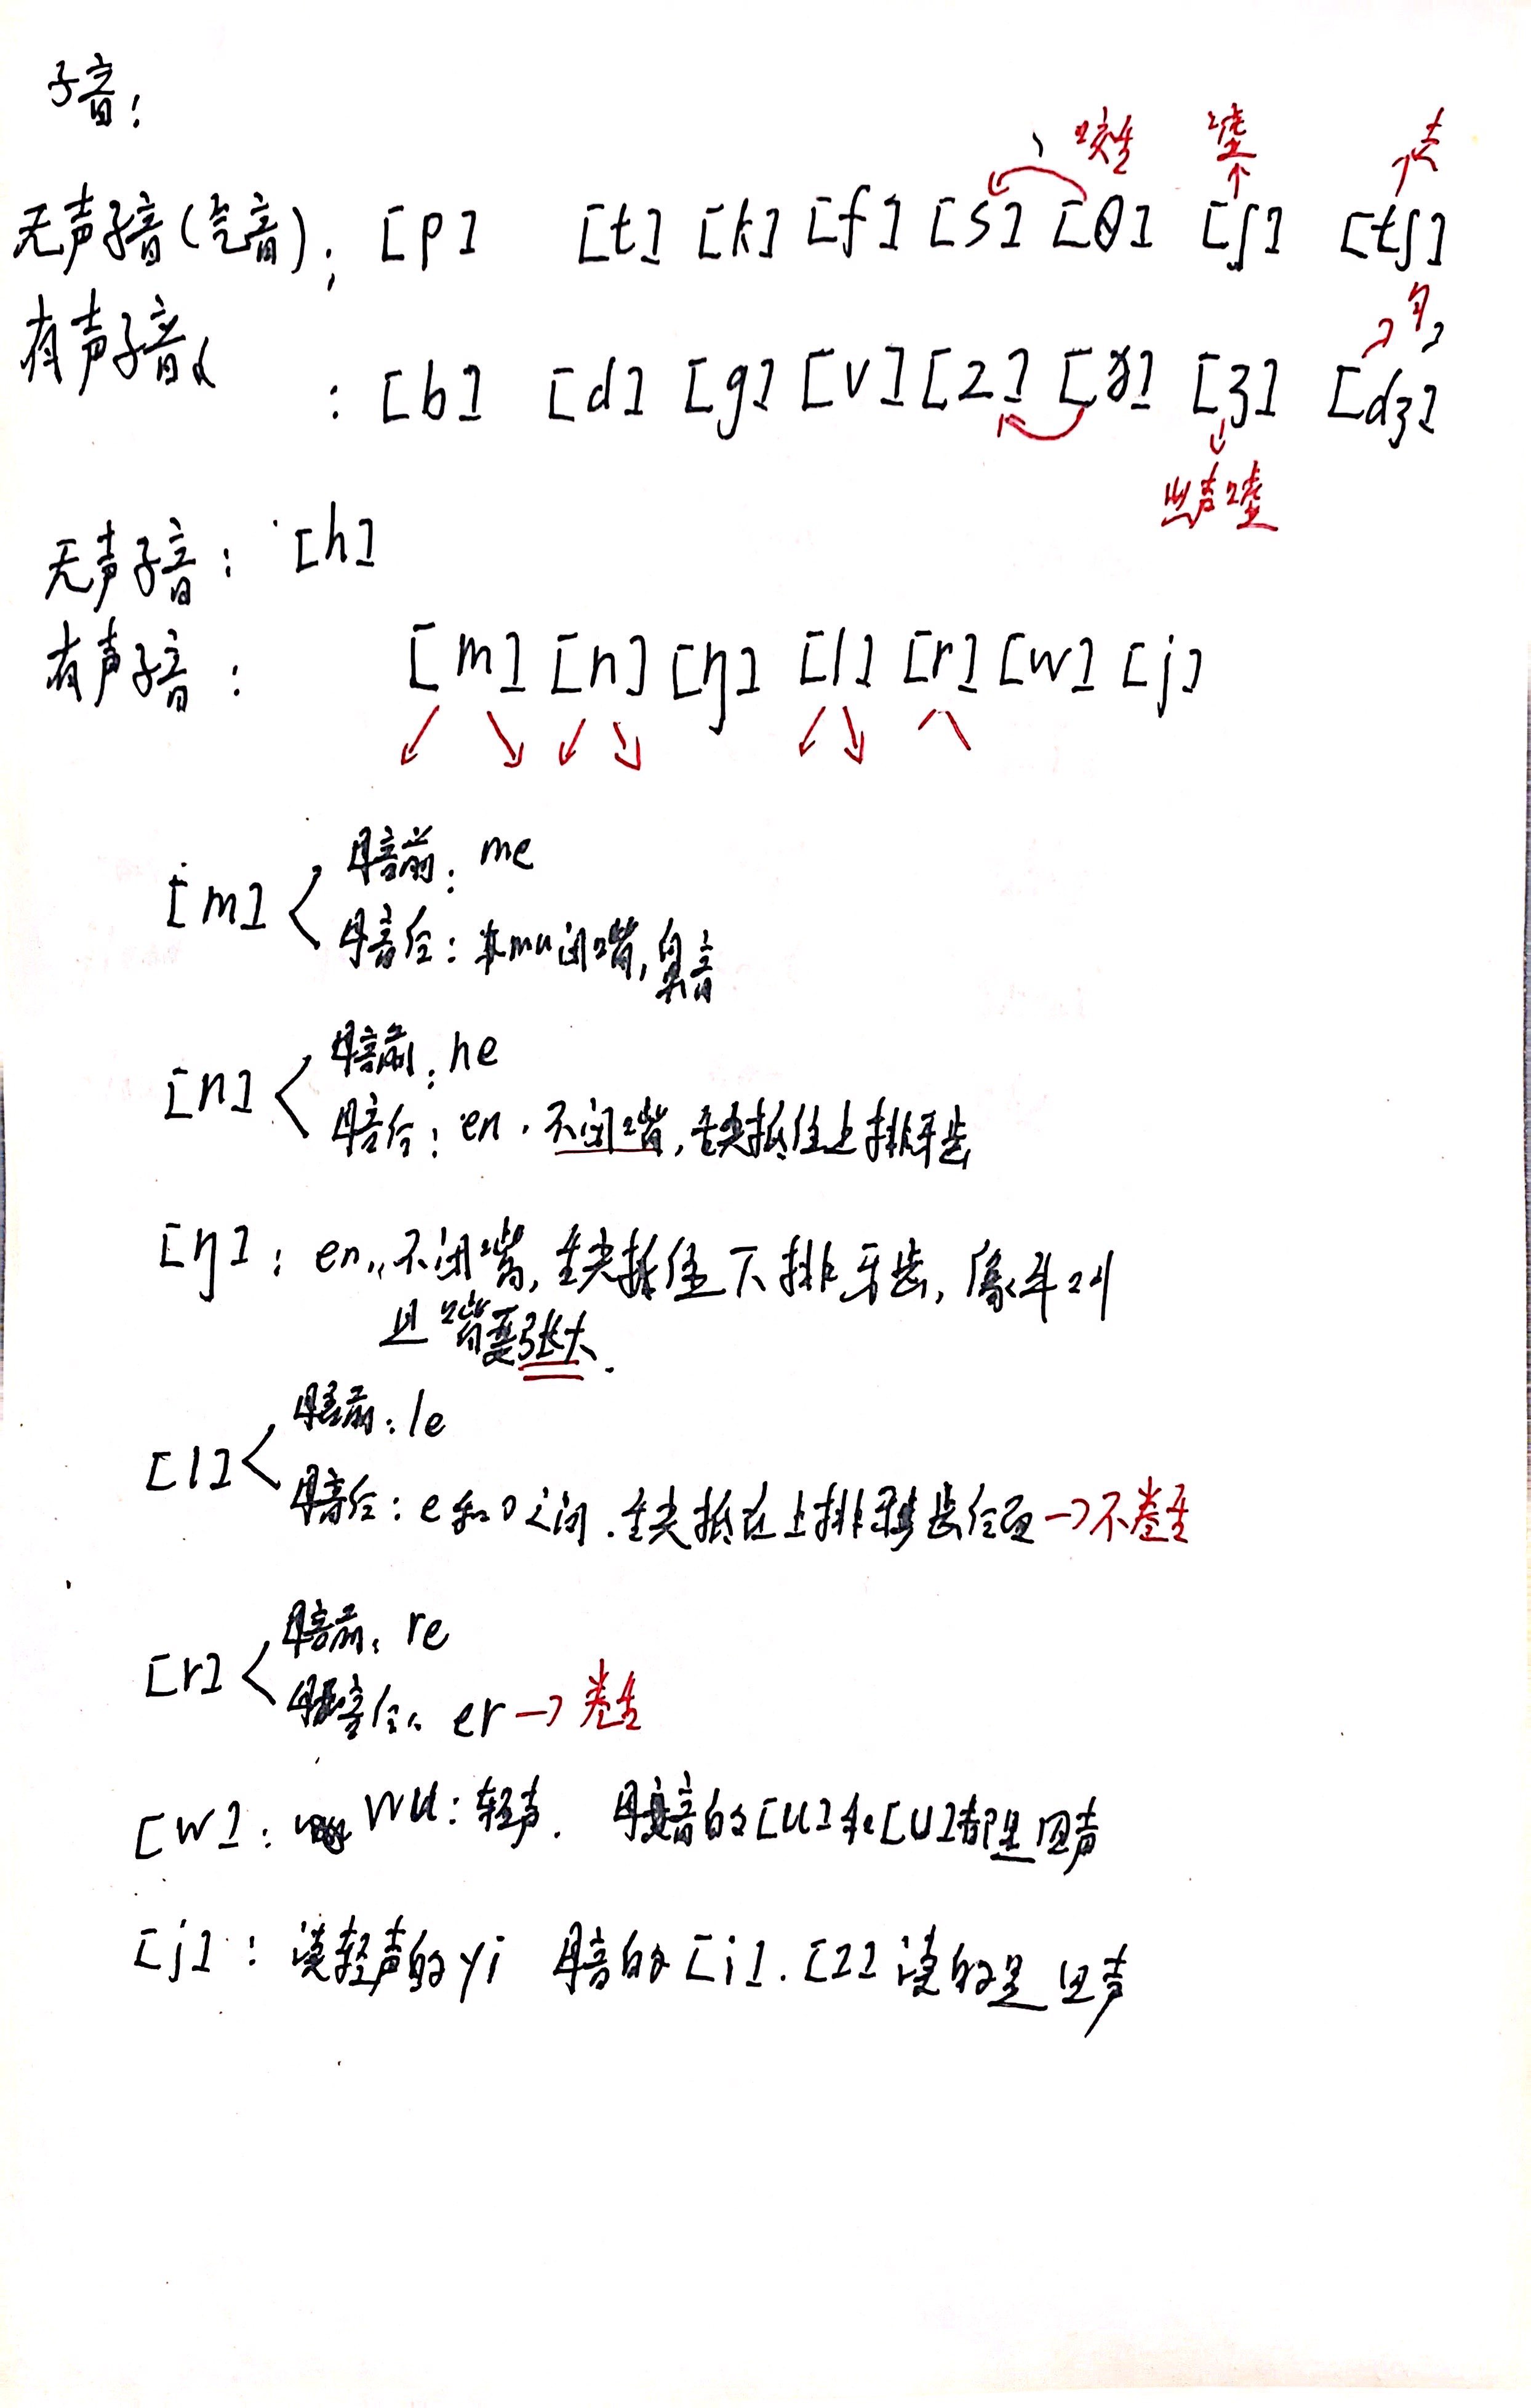 子音:
咬舌 嘘 去
无声子音(气音): [p] [t] [k] [f] [s] [θ] [ʃ] [tʃ]
有声子音
: [b] [d] [g] [v] [z] [ð] [ʒ] [dʒ]
出声嘘
无声子音: [h]
有声子音: [m] [n] [ŋ] [l] [r] [w] [j]
[m] 母音前: me
母音后: mu闭嘴,鼻音
[n] 母音前: ne
母音后: en. 不闭嘴,舌尖抵住上排牙齿
[ŋ]: en, 不闭嘴,舌尖抵住下排牙齿,像牛叫
且嘴要张大.
[l] 母音前: le
母音后: e和o之间.舌尖抵在上排牙齿后面→不卷舌
[r] 母音前: re
母音后: er→卷舌
[w]: wu:轻声. 母音的[u]和[U]都是四声
[j]: 读轻声的yi 母音的[i].[I]读的是四声